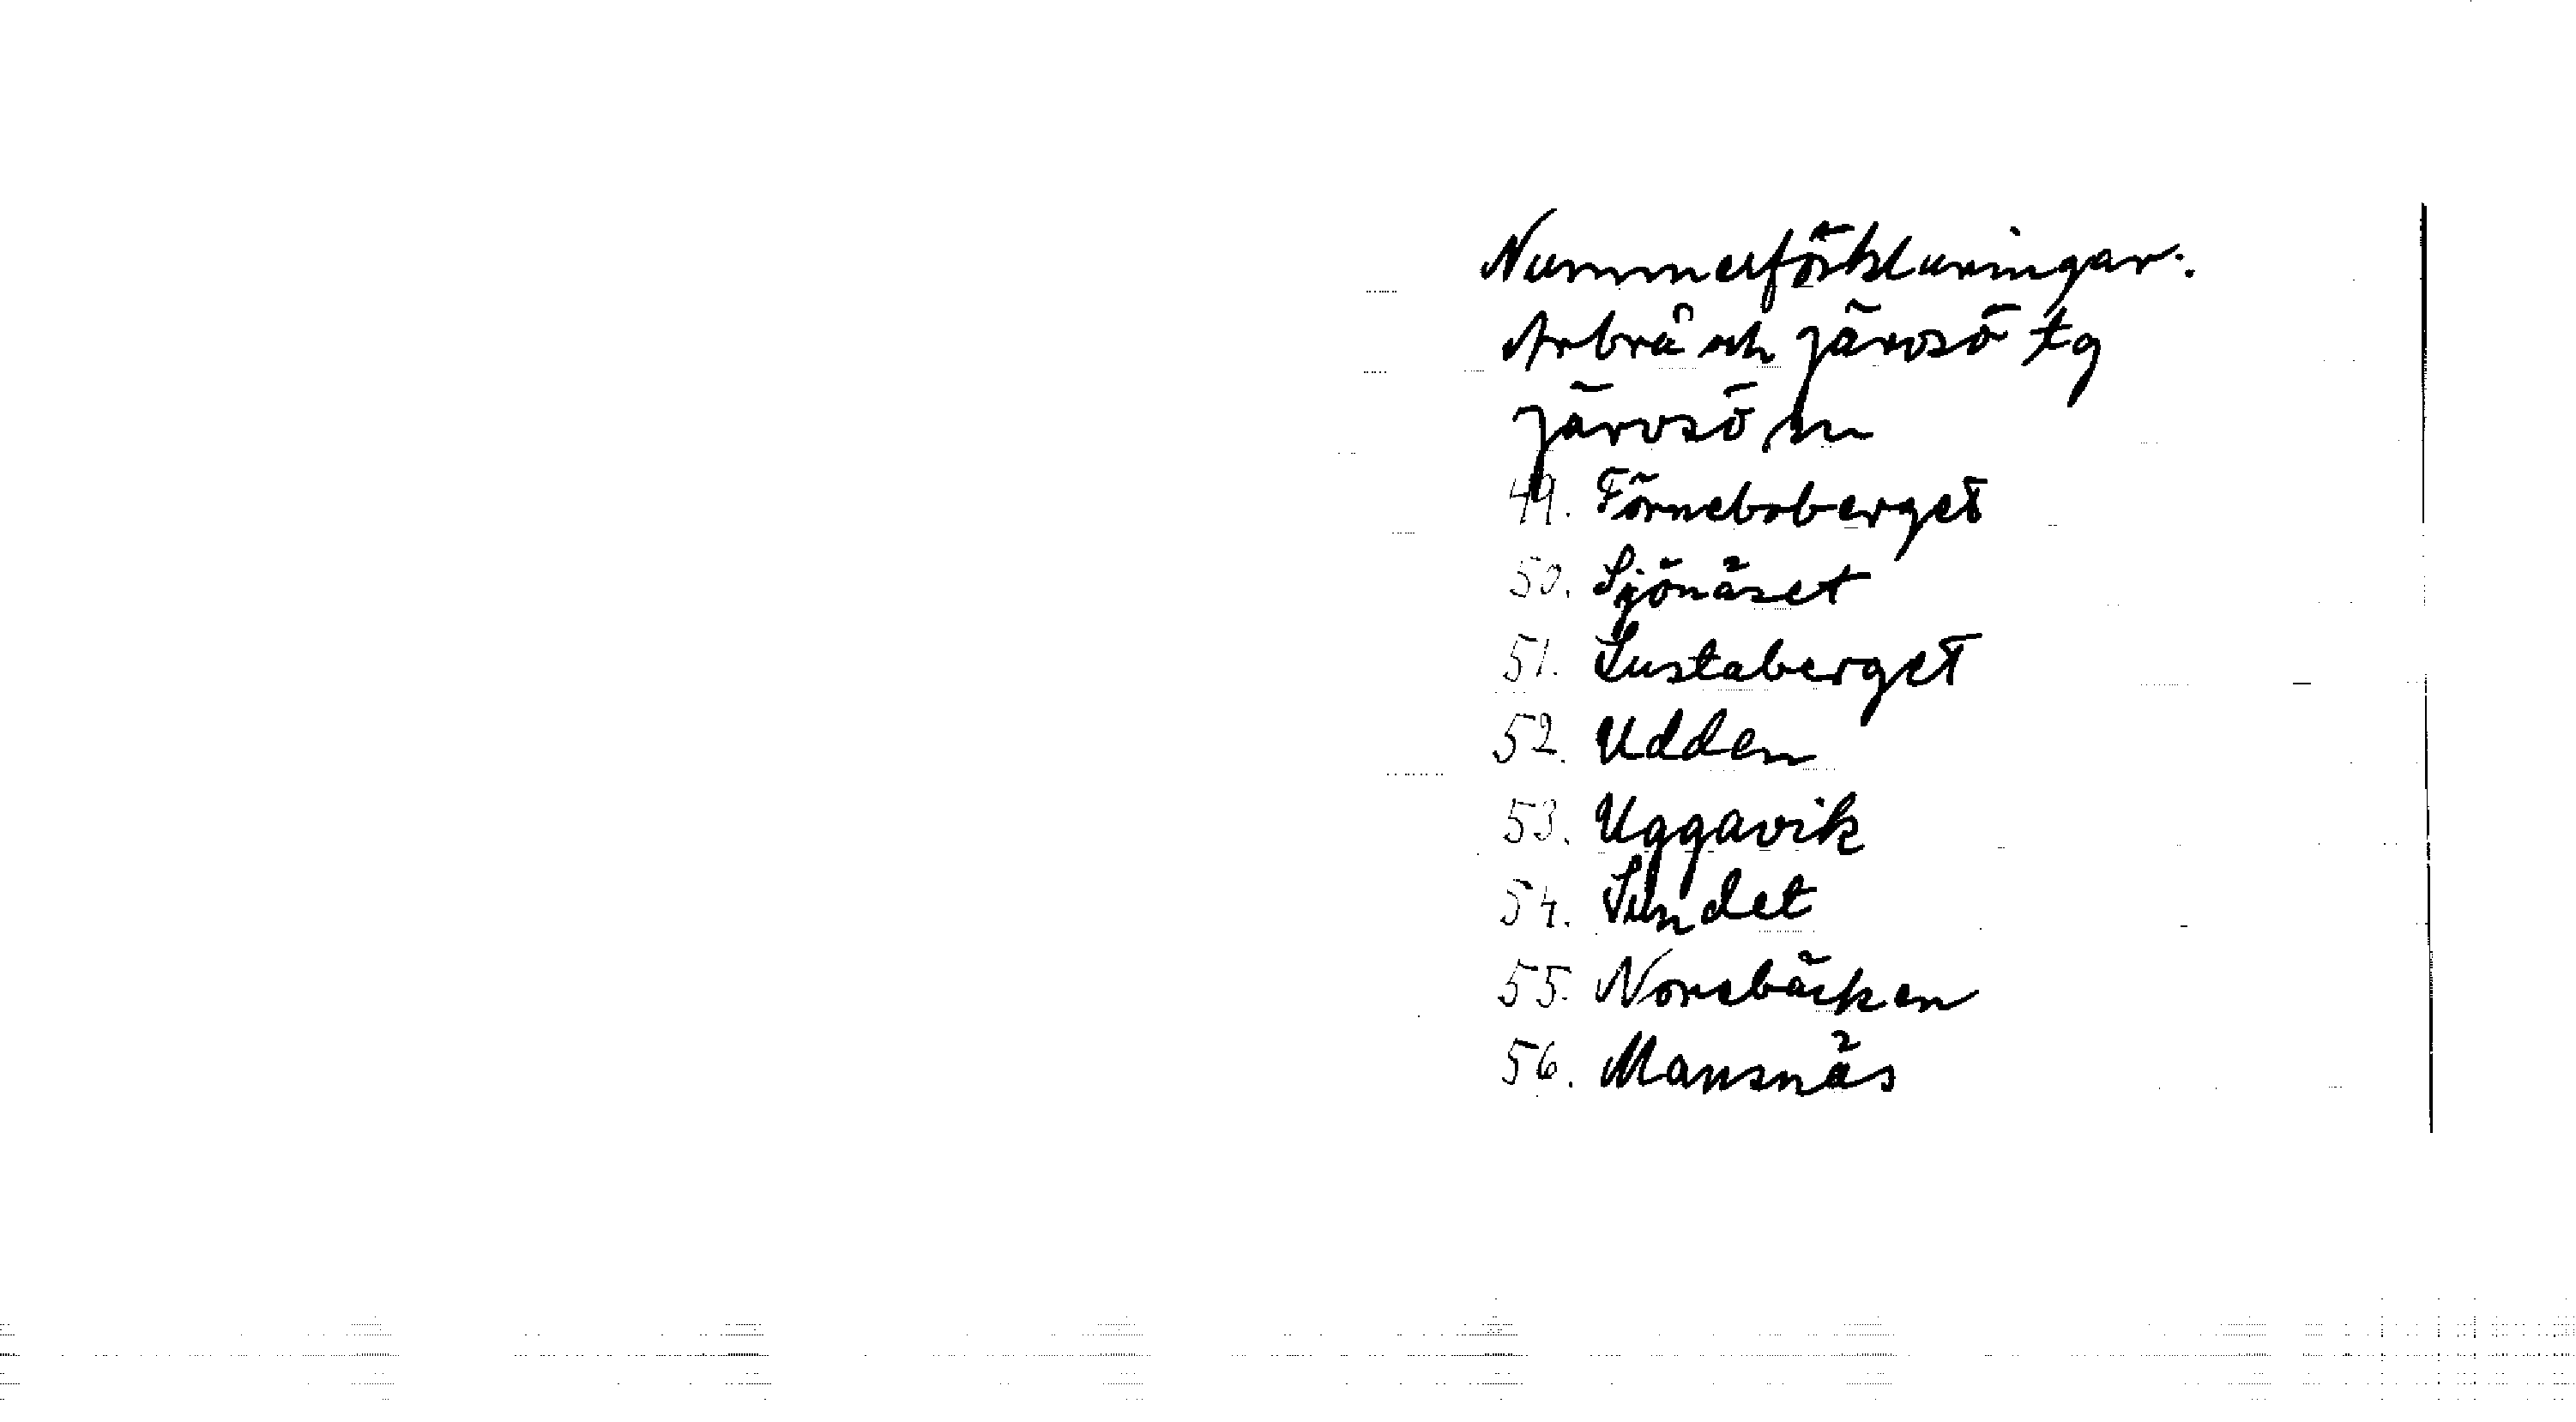 Nummerförklaringar.
Arbrå och Järvsö tg
Järvsö sn
49. Förneboberget
50. Sjönäset
51. Sustaberget
52. Udden
53. Uggavik
54. Sundet
55. Norsbäcken
56. Mansnäs